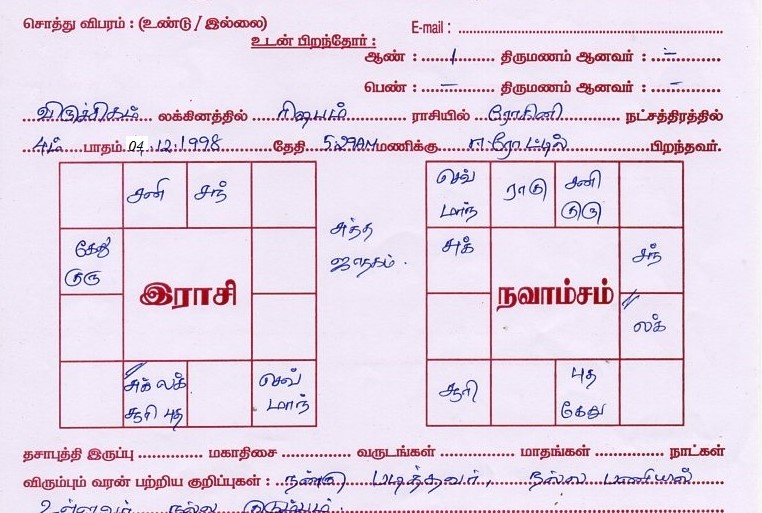 சொத்து விபரம் : (உண்டு / இல்லை) E-mail : ....................
உடன் பிறந்தோர் :
ஆண் : ......1...... திருமணம் ஆனவர் : ..–..........
பெண் : .....–...... திருமணம் ஆனவர் : ...–.........
விருச்சிகம் லக்கினத்தில் ரிஷபம் ராசியில் ரோகினி நட்சத்திரத்தில்
4ம் பாதம் 04.12.1998 தேதி 5.29AM மணிக்கு ஈரோட்டில் பிறந்தவர்.
சனி சந்
கேது
குரு
இராசி
சுக் லக்
சூரி புத
செவ்
மாந்
சுத்த
ஜாதகம்.
செவ்
மாந்
ராகு
சனி
குரு
சுக்
சந்
நவாம்சம்
லக்
சூரி
புத
கேது
தசாபுத்தி இருப்பு ............. மகாதிசை ............. வருடங்கள் ............. மாதங்கள் ............. நாட்கள்
விரும்பும் வரன் பற்றிய குறிப்புகள் : நன்கு படித்தவர், நல்ல பணியில்
உள்ளவர் நல்ல குடும்பம்.